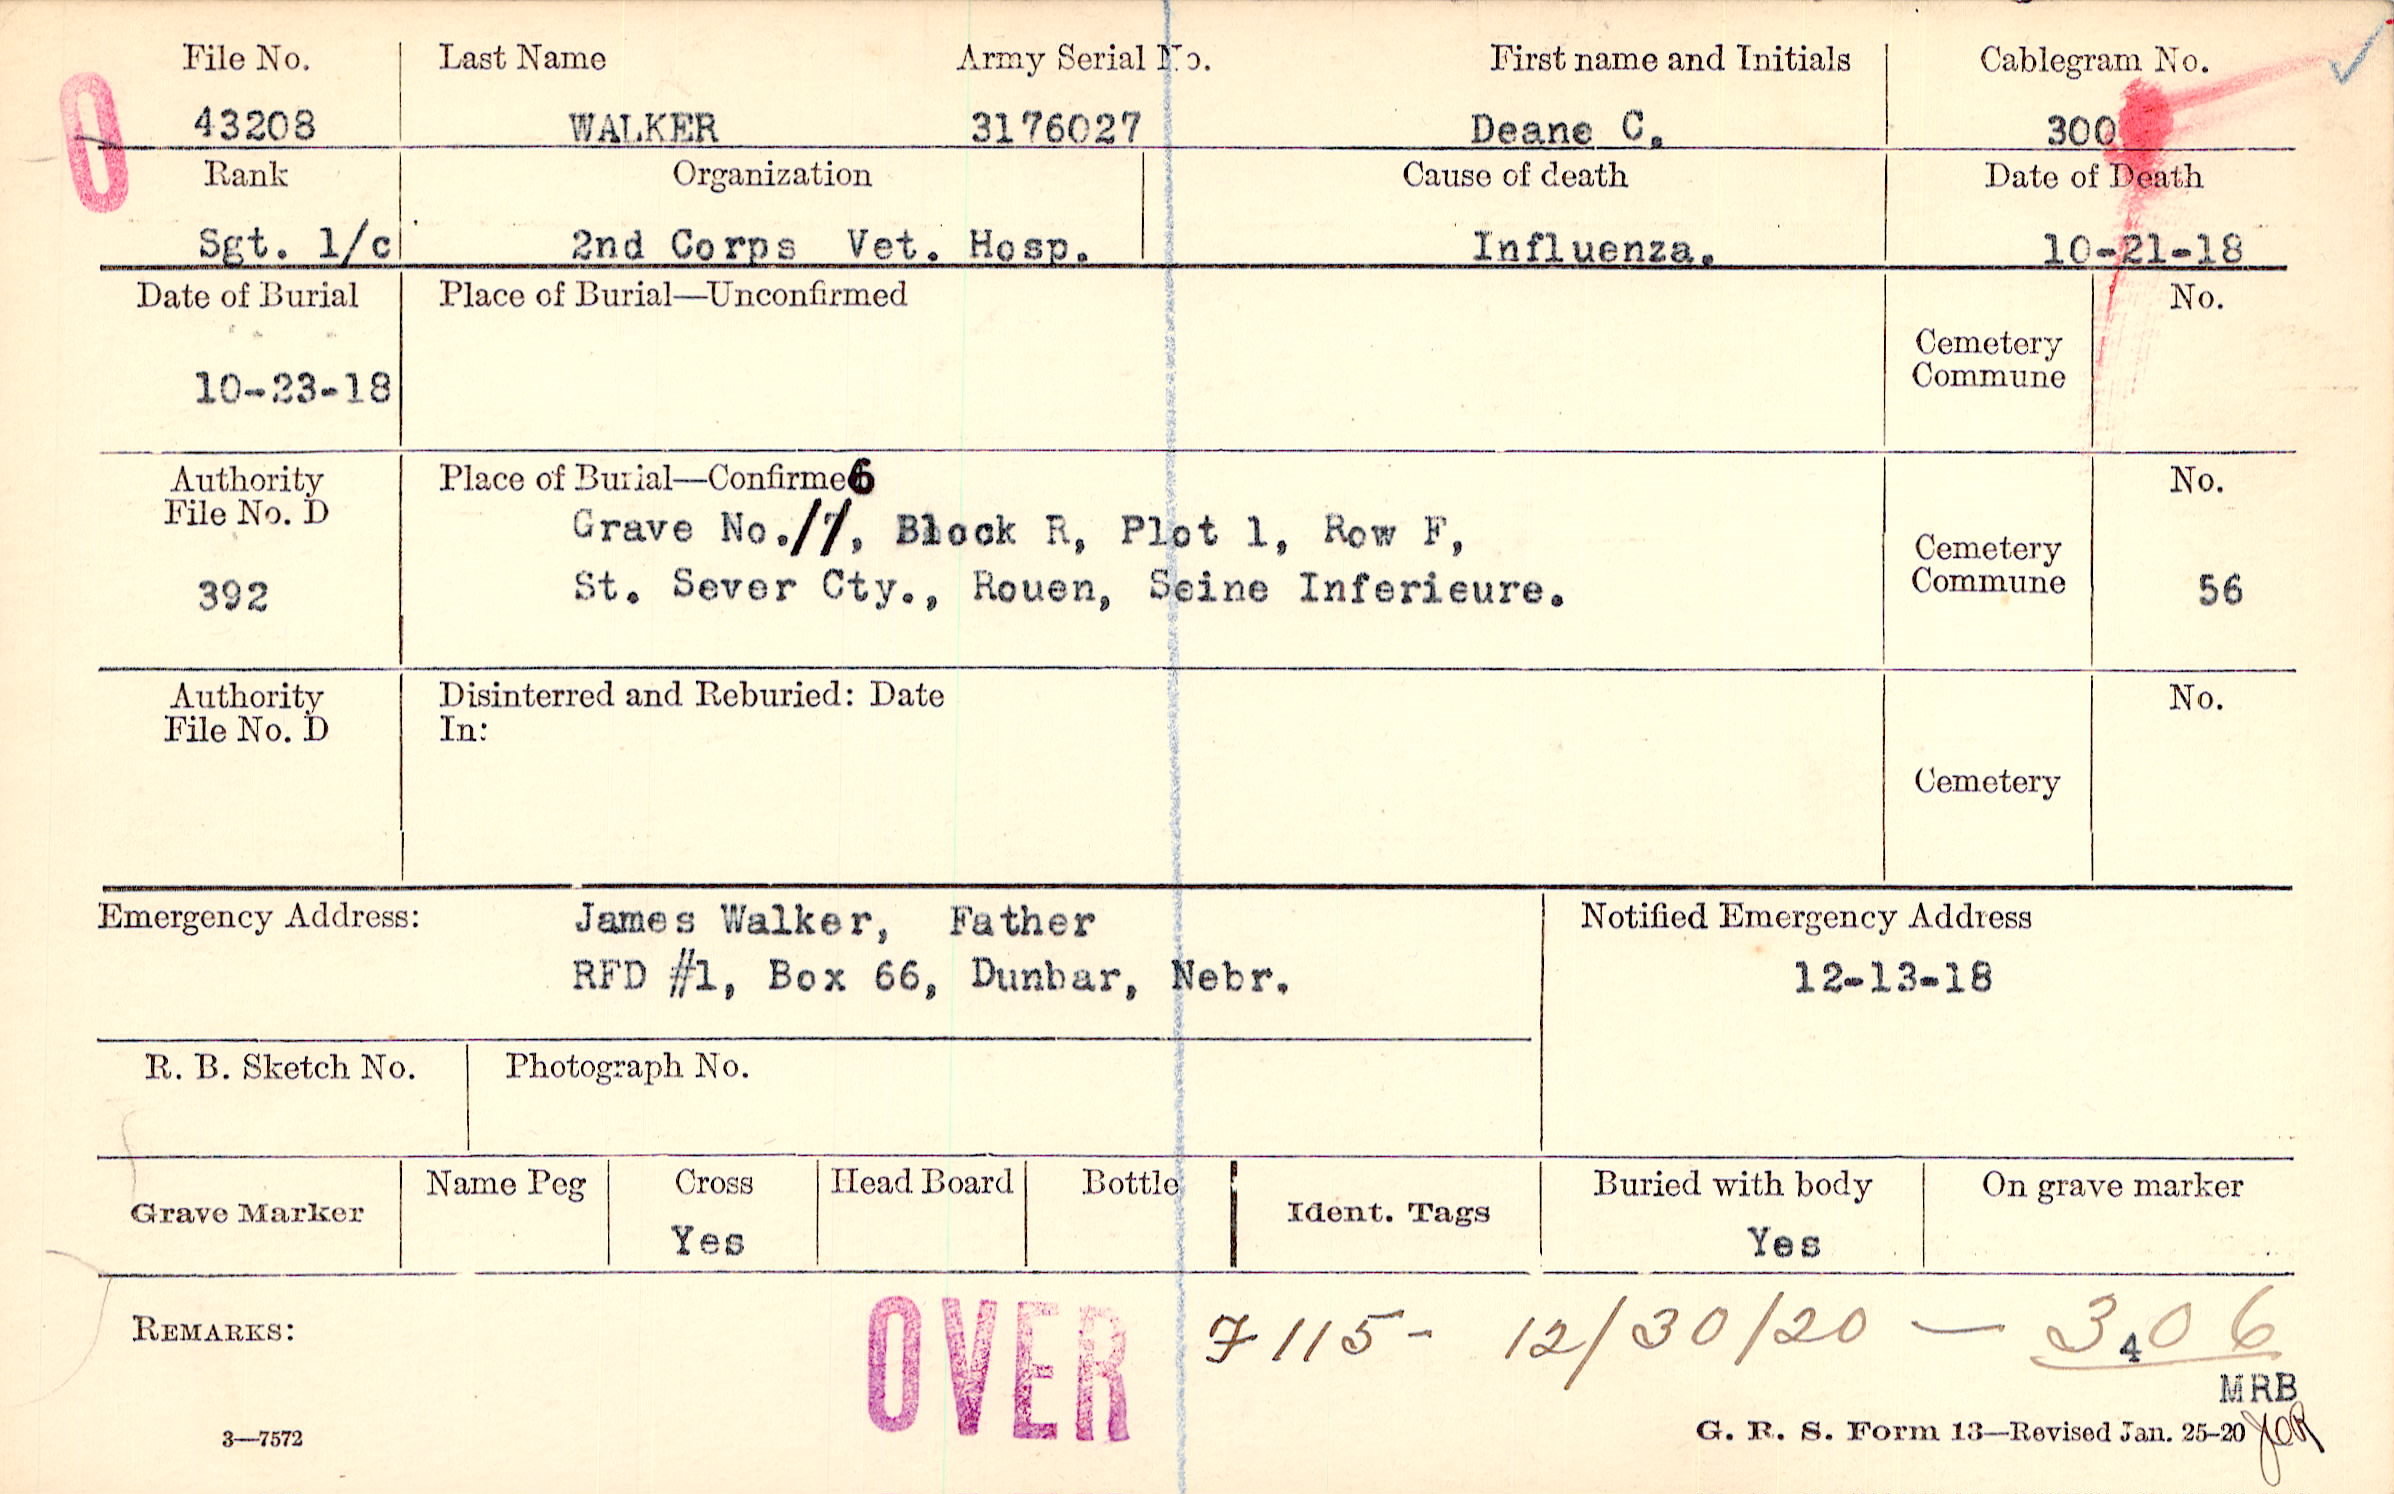 File No. Last Name Army Serial No. First name and Initials Cablegram No.
0 43208 WALKER 3176027 Deane C. 300
Rank Organization Cause of death Date of Death
Sgt. 1/c 2nd Corps Vet. Hosp. Influenza. 10-21-18
Date of Burial Place of Burial—Unconfirmed No.
Cemetery
Commune
10-23-18
Authority Place of Burial—Confirme6 No.
File No. D
Grave No. , Block R, Plot 1, Row F,
Cemetery
Commune
392 St. Sever Cty., Rouen, Seine Inferieure. 56
Authority Disinterred and Reburied: Date No.
File No. D In:
Cemetery
Emergency Address: James Walker, Father Notified Emergency Address
RFD #1, Box 66, Dunbar, Nebr. 12-13-18
R. B. Sketch No. Photograph No.
Name Peg Cross Head Board Bottle Buried with body On grave marker
Grave Marker Ident. Tags
Yes Yes
REMARKS: OVER 7115- 12/30/20 — 306
4
MRB
3—7572 G. R. S. Form 13—Revised Jan. 25-20